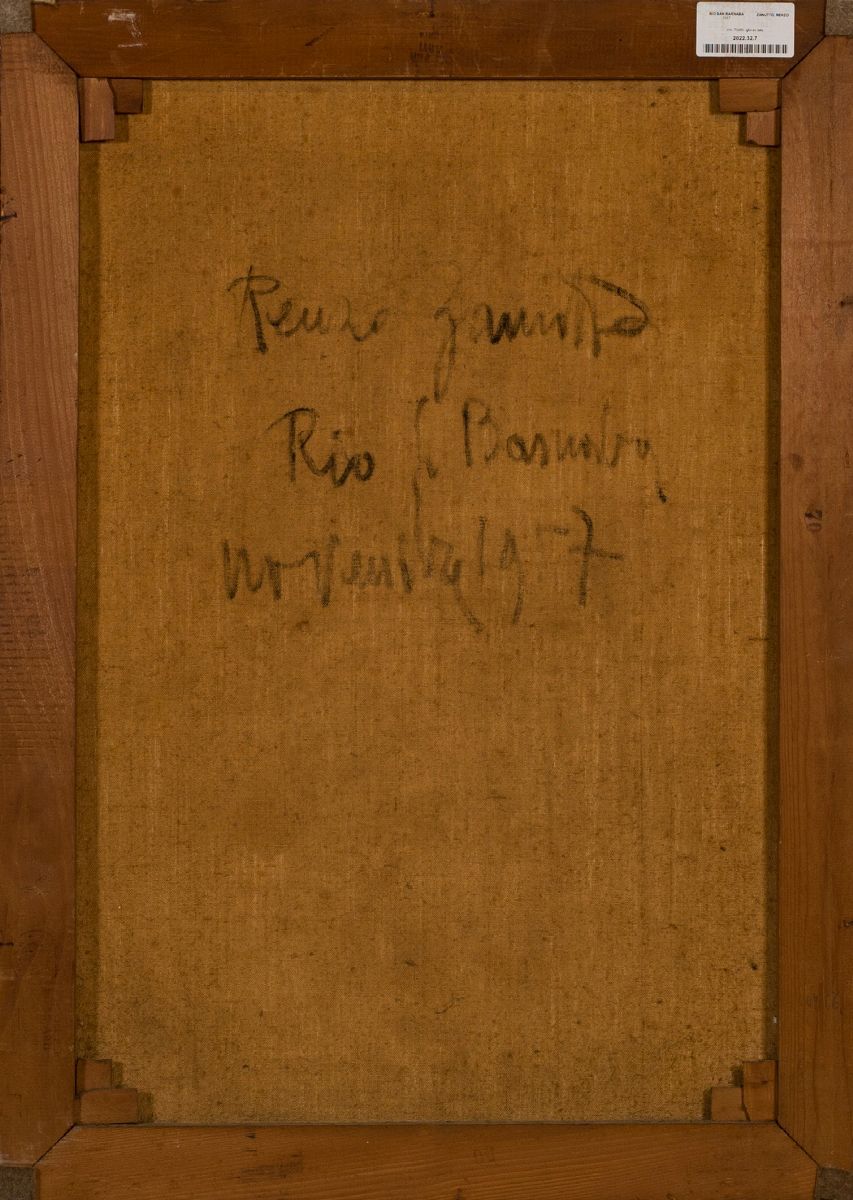 RIO SAN BARNABA ZANUTTO, RENZO
2022.32.7
Renzo Zanutto
Rio S. Barnaba
novembre 1957
20